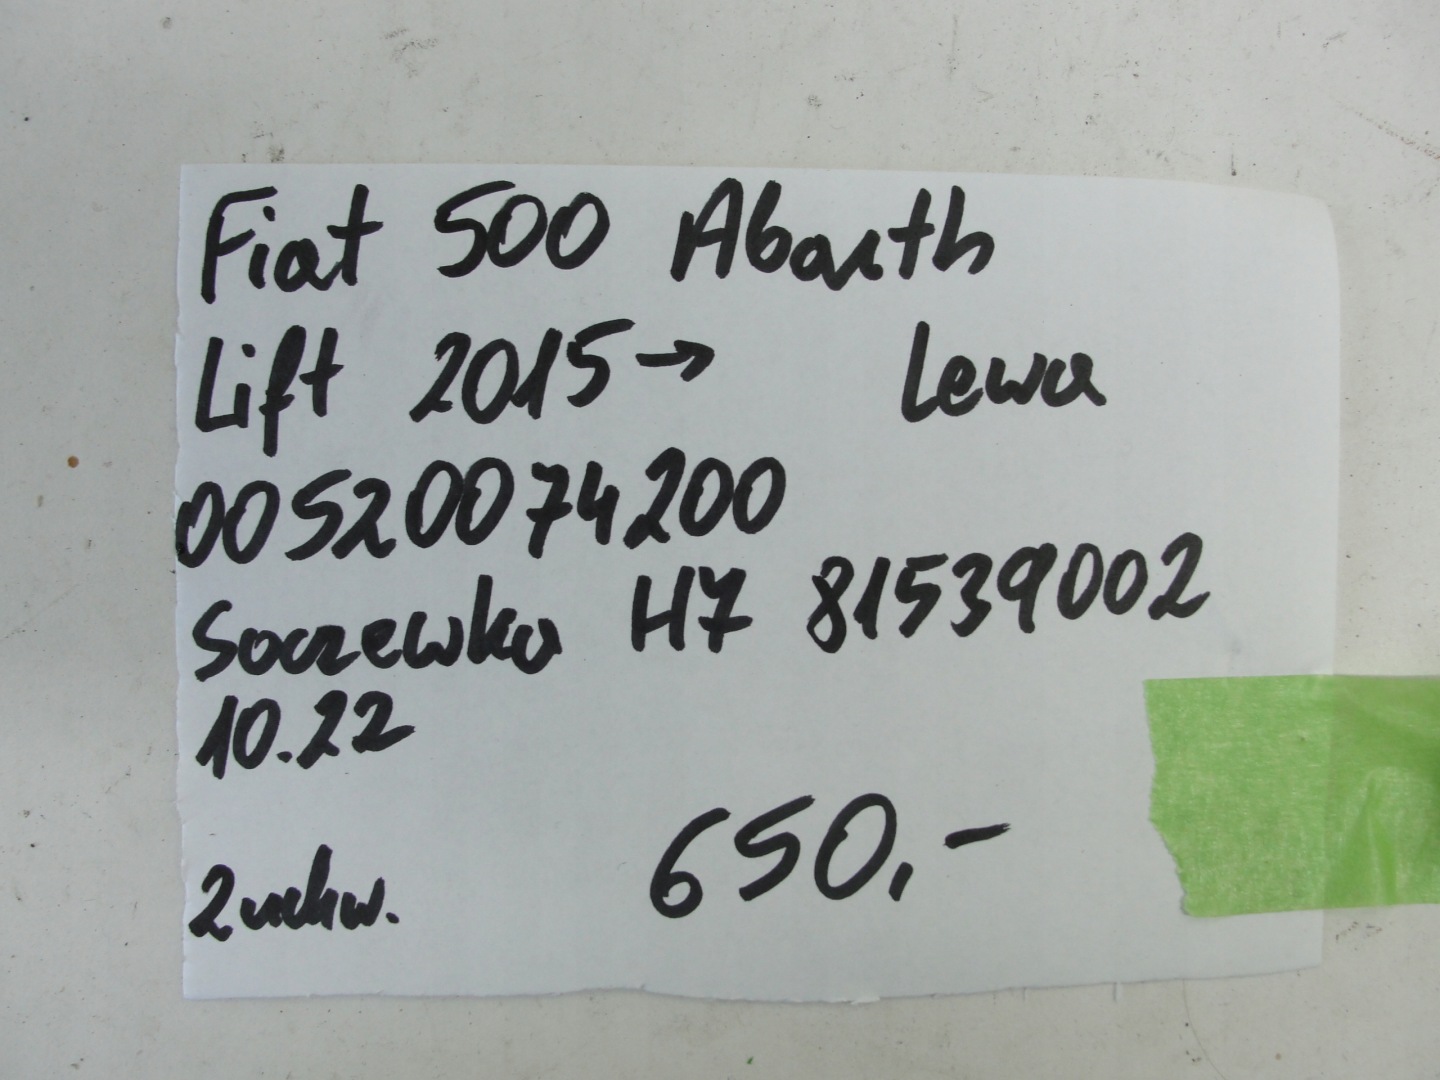 Fiat 500 Abarth
Lift 2015→ Lewa
00520074200
Soczewka H7 81539002
10.22
650,-
2 uchw.